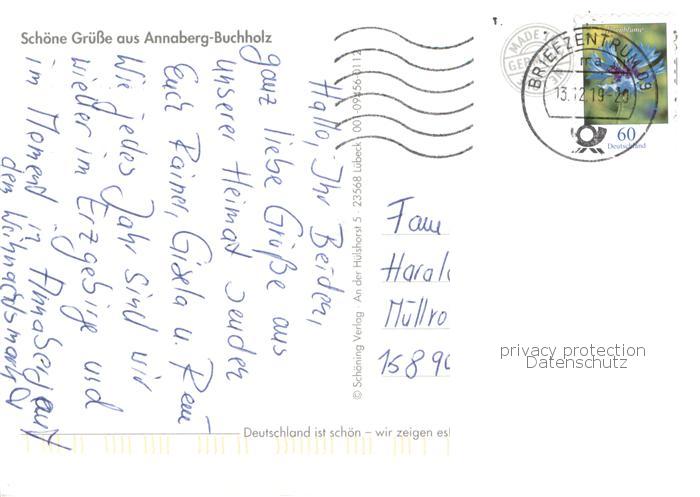 Schöne Grüße aus Annaberg-Buchholz
Hallo, Ihr Beiden,
ganz liebe Grüße aus
unserer Heimat senden
Euch Rainer, Gisela u. René
Wie jedes Jahr sind wir
wieder im Erzgebirge und
im Moment in Annaberg auf
dem Weihnachtsmarkt
© Schöning Verlag · An der Hülshorst 5 · 23568 Lübeck
Deutschland ist schön – wir zeigen es!
MADE
BRIEFZENTRUM 09
ma
13.12.19-20
60
Deutschland
Fam
Haral
Müllro
1589
privacy protection
Datenschutz